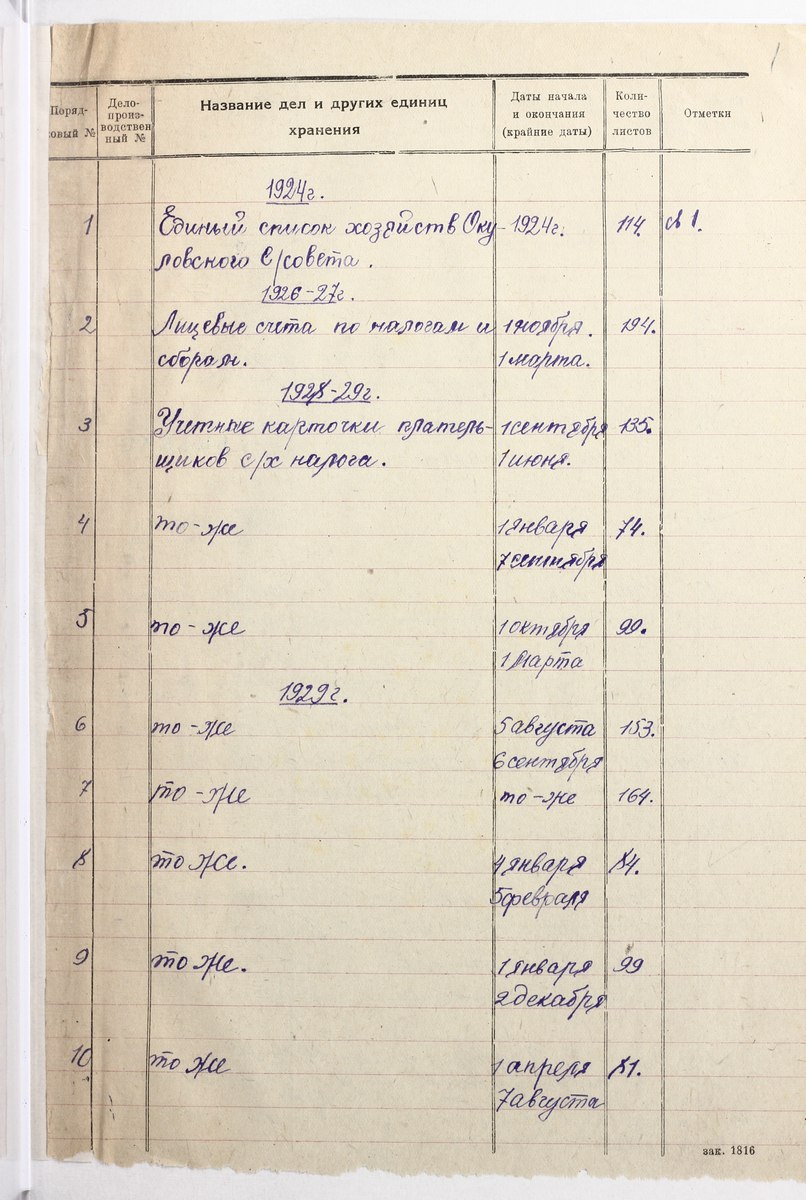 1
Поряд-
овый №
Дело-
произ-
водствен
ный №
Название дел и других единиц
хранения
Даты начала
и окончания
(крайние даты)
Коли-
чество
листов
Отметки
1924г.
1 Единый список хозяйств Оку- 1924г. 114.
ловского С/совета.
1926-27г.
2 Лицевые счета по налогам и 1 ноября. 194.
сборам. 1 марта.
1928-29г.
3 Учетные карточки платель- 1 сентября 135.
щиков с/х налога. 1 июня.
4 то-же 1 января 74.
7 сентября
5 то-же 1 октября 99.
1 Марта
1929г.
6 то-же 5 августа 153.
6 сентября
7 то-же то-же 164.
8 то же. 4 января 84.
5 февраля
9 то же. 1 января 99
2 декабря
10 то же 1 апреля 81.
7 августа
зак. 1816